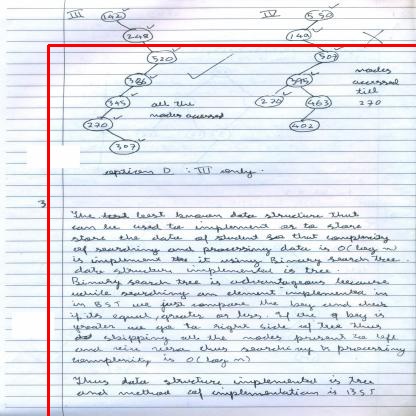 III
142
248
520
386
345
270
307
all the
nodes accessed
IV
550
149
507
395
270
463
402
nodes
accessed
till
270
option D : III only.
3
The best known data structure that
can be used to implement or to store
store the data of student so that complexity
of searching and processing data is O(log n)
is implement it using Binary search tree.
data structure implemented is tree.
Binary search tree is advantageous because
while searching an element implemented in
in BST we just compare the key and check
if its equal, greater or less. If the key is
greater we go to right side of tree thus
skipping all the nodes present to left
and vice versa thus searching & processing
complexity is O(log n)
Thus data structure implemented is tree
and method of implementation is BST